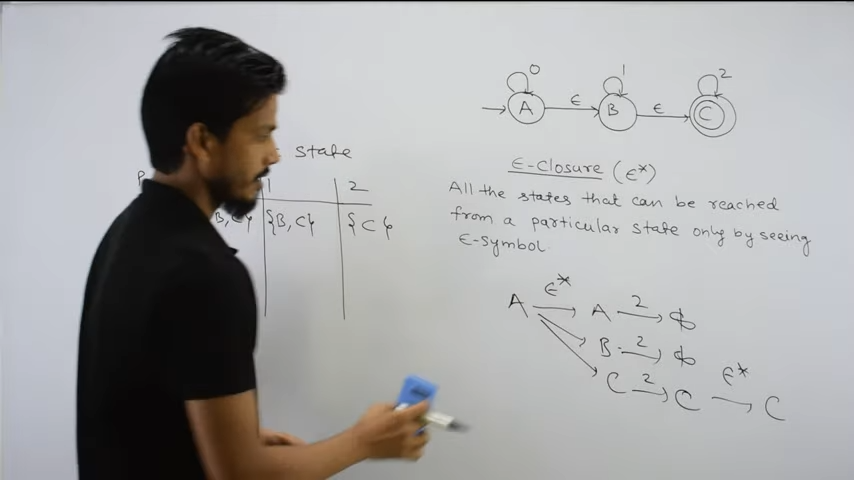 0 1 2
A ϵ B ϵ C
state
P
1 2
B, C} {B, C} {C}
ϵ-Closure (ϵ*)
All the states that can be reached
from a particular state only by seeing
ϵ-symbol
A ϵ* A 2 ϕ
B 2 ϕ
C 2 C ϵ* C